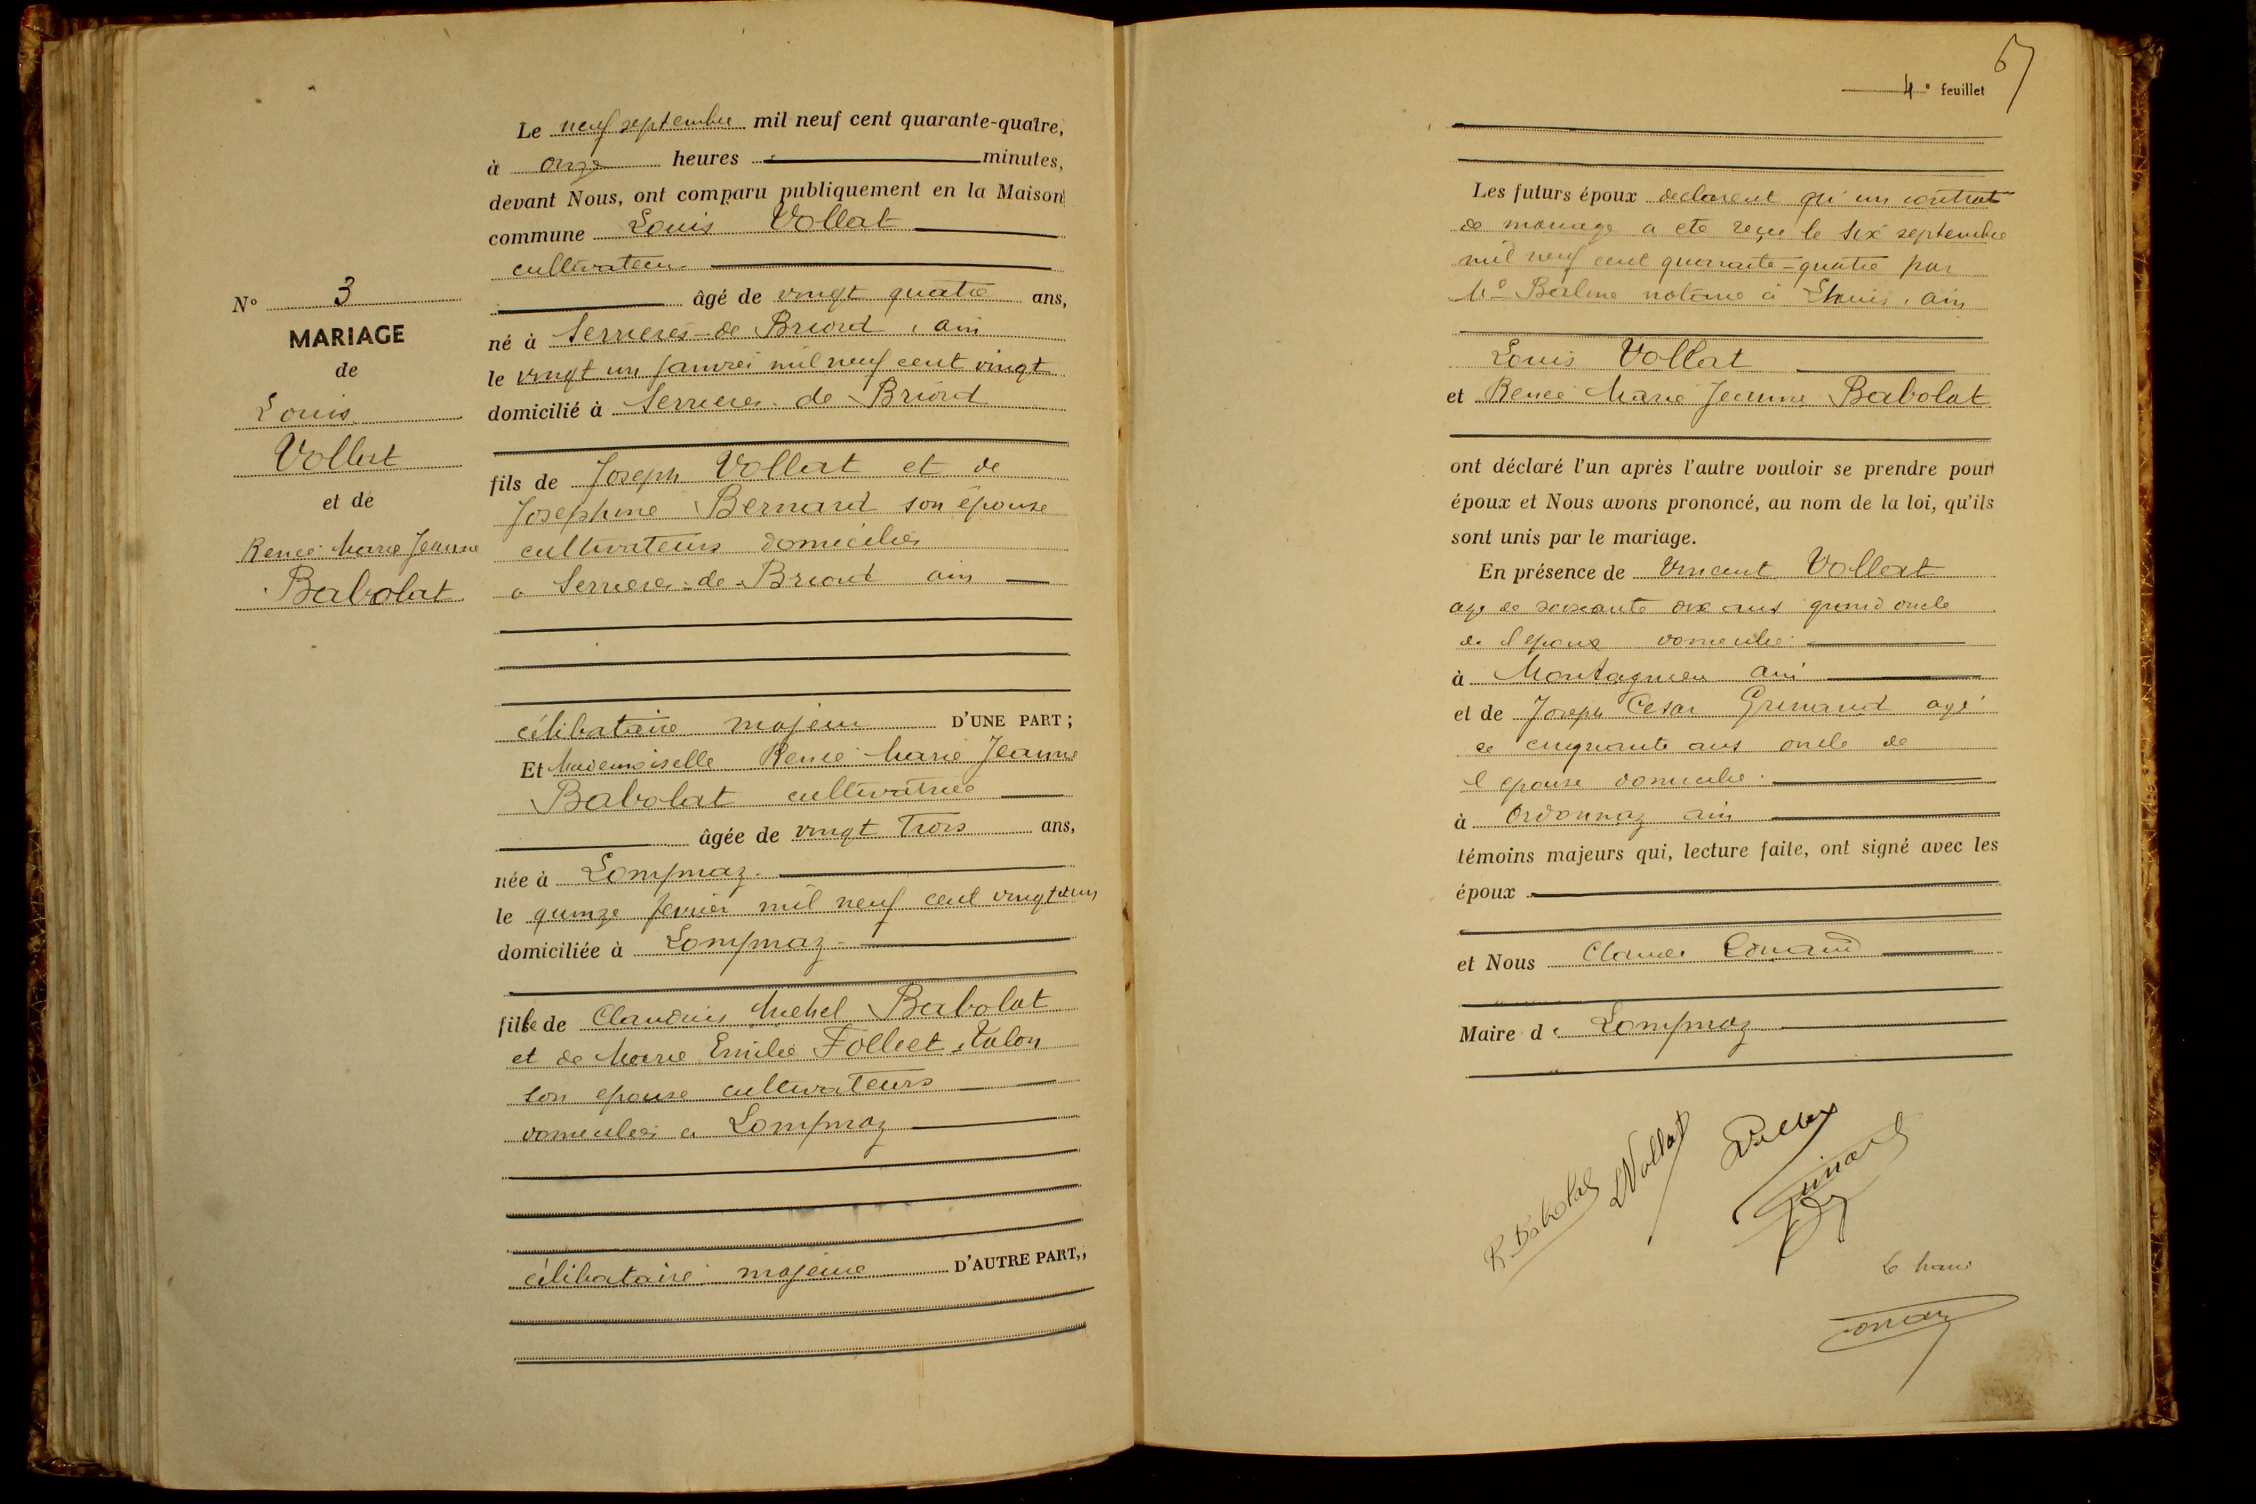 Le neuf septembre mil neuf cent quarante-quatre,
à onze heures minutes,
devant Nous, ont comparu publiquement en la Maison
commune Louis Vollat
cultivateur
âgé de vingt quatre ans,
né à Serrieres-de Briord, ain
le vingt un janvier mil neuf cent vingt
domicilié à Serrieres-de Briord
N° 3
MARIAGE
de
Louis
Vollat
et de
Renée Marie Jeanne
Babolat
fils de Joseph Vollat et de
Josephine Bernard son épouse
cultivateurs domiciliés
a Serrieres-de-Briord ain
célibataire majeur D'UNE PART ;
Et Mademoiselle Renée Marie Jeanne
Babolat cultivatrice
âgée de vingt trois ans,
née à Lompnaz
le quinze fevrier mil neuf cent vingt et un
domiciliée à Lompnaz
fille de Claudius Michel Babolat
et de Marie Emilie Folliet
son epouse cultivateurs
domiciliés a Lompnaz
célibataire majeure D'AUTRE PART,,
67
4e feuillet
Les futurs époux declarent qu'un contrat
de mariage a eté reçu le six septembre
mil neuf cent quarante-quatre par
Me notaire à ain
Louis Vollat
et Renée Marie Jeanne Babolat
ont déclaré l'un après l'autre vouloir se prendre pour
époux et Nous avons prononcé, au nom de la loi, qu'ils
sont unis par le mariage.
En présence de Vincent Vollat
age de soixante dix ans grand oncle
de l epoux domicilié
à Montagnieu ain
et de Joseph Cesar Grinand agé
de cinquante ans oncle de
l epouse domicilié
à Ordonnaz ain
témoins majeurs qui, lecture faite, ont signé avec les
époux
et Nous
Maire de Lompnaz
R Babolat
LVollat
Le maire